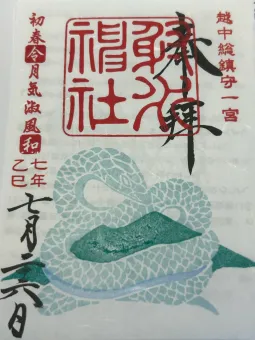 越中総鎮守一宮
奉拝
射水神社
初春令月気淑風和
七年
乙巳
七月二六日